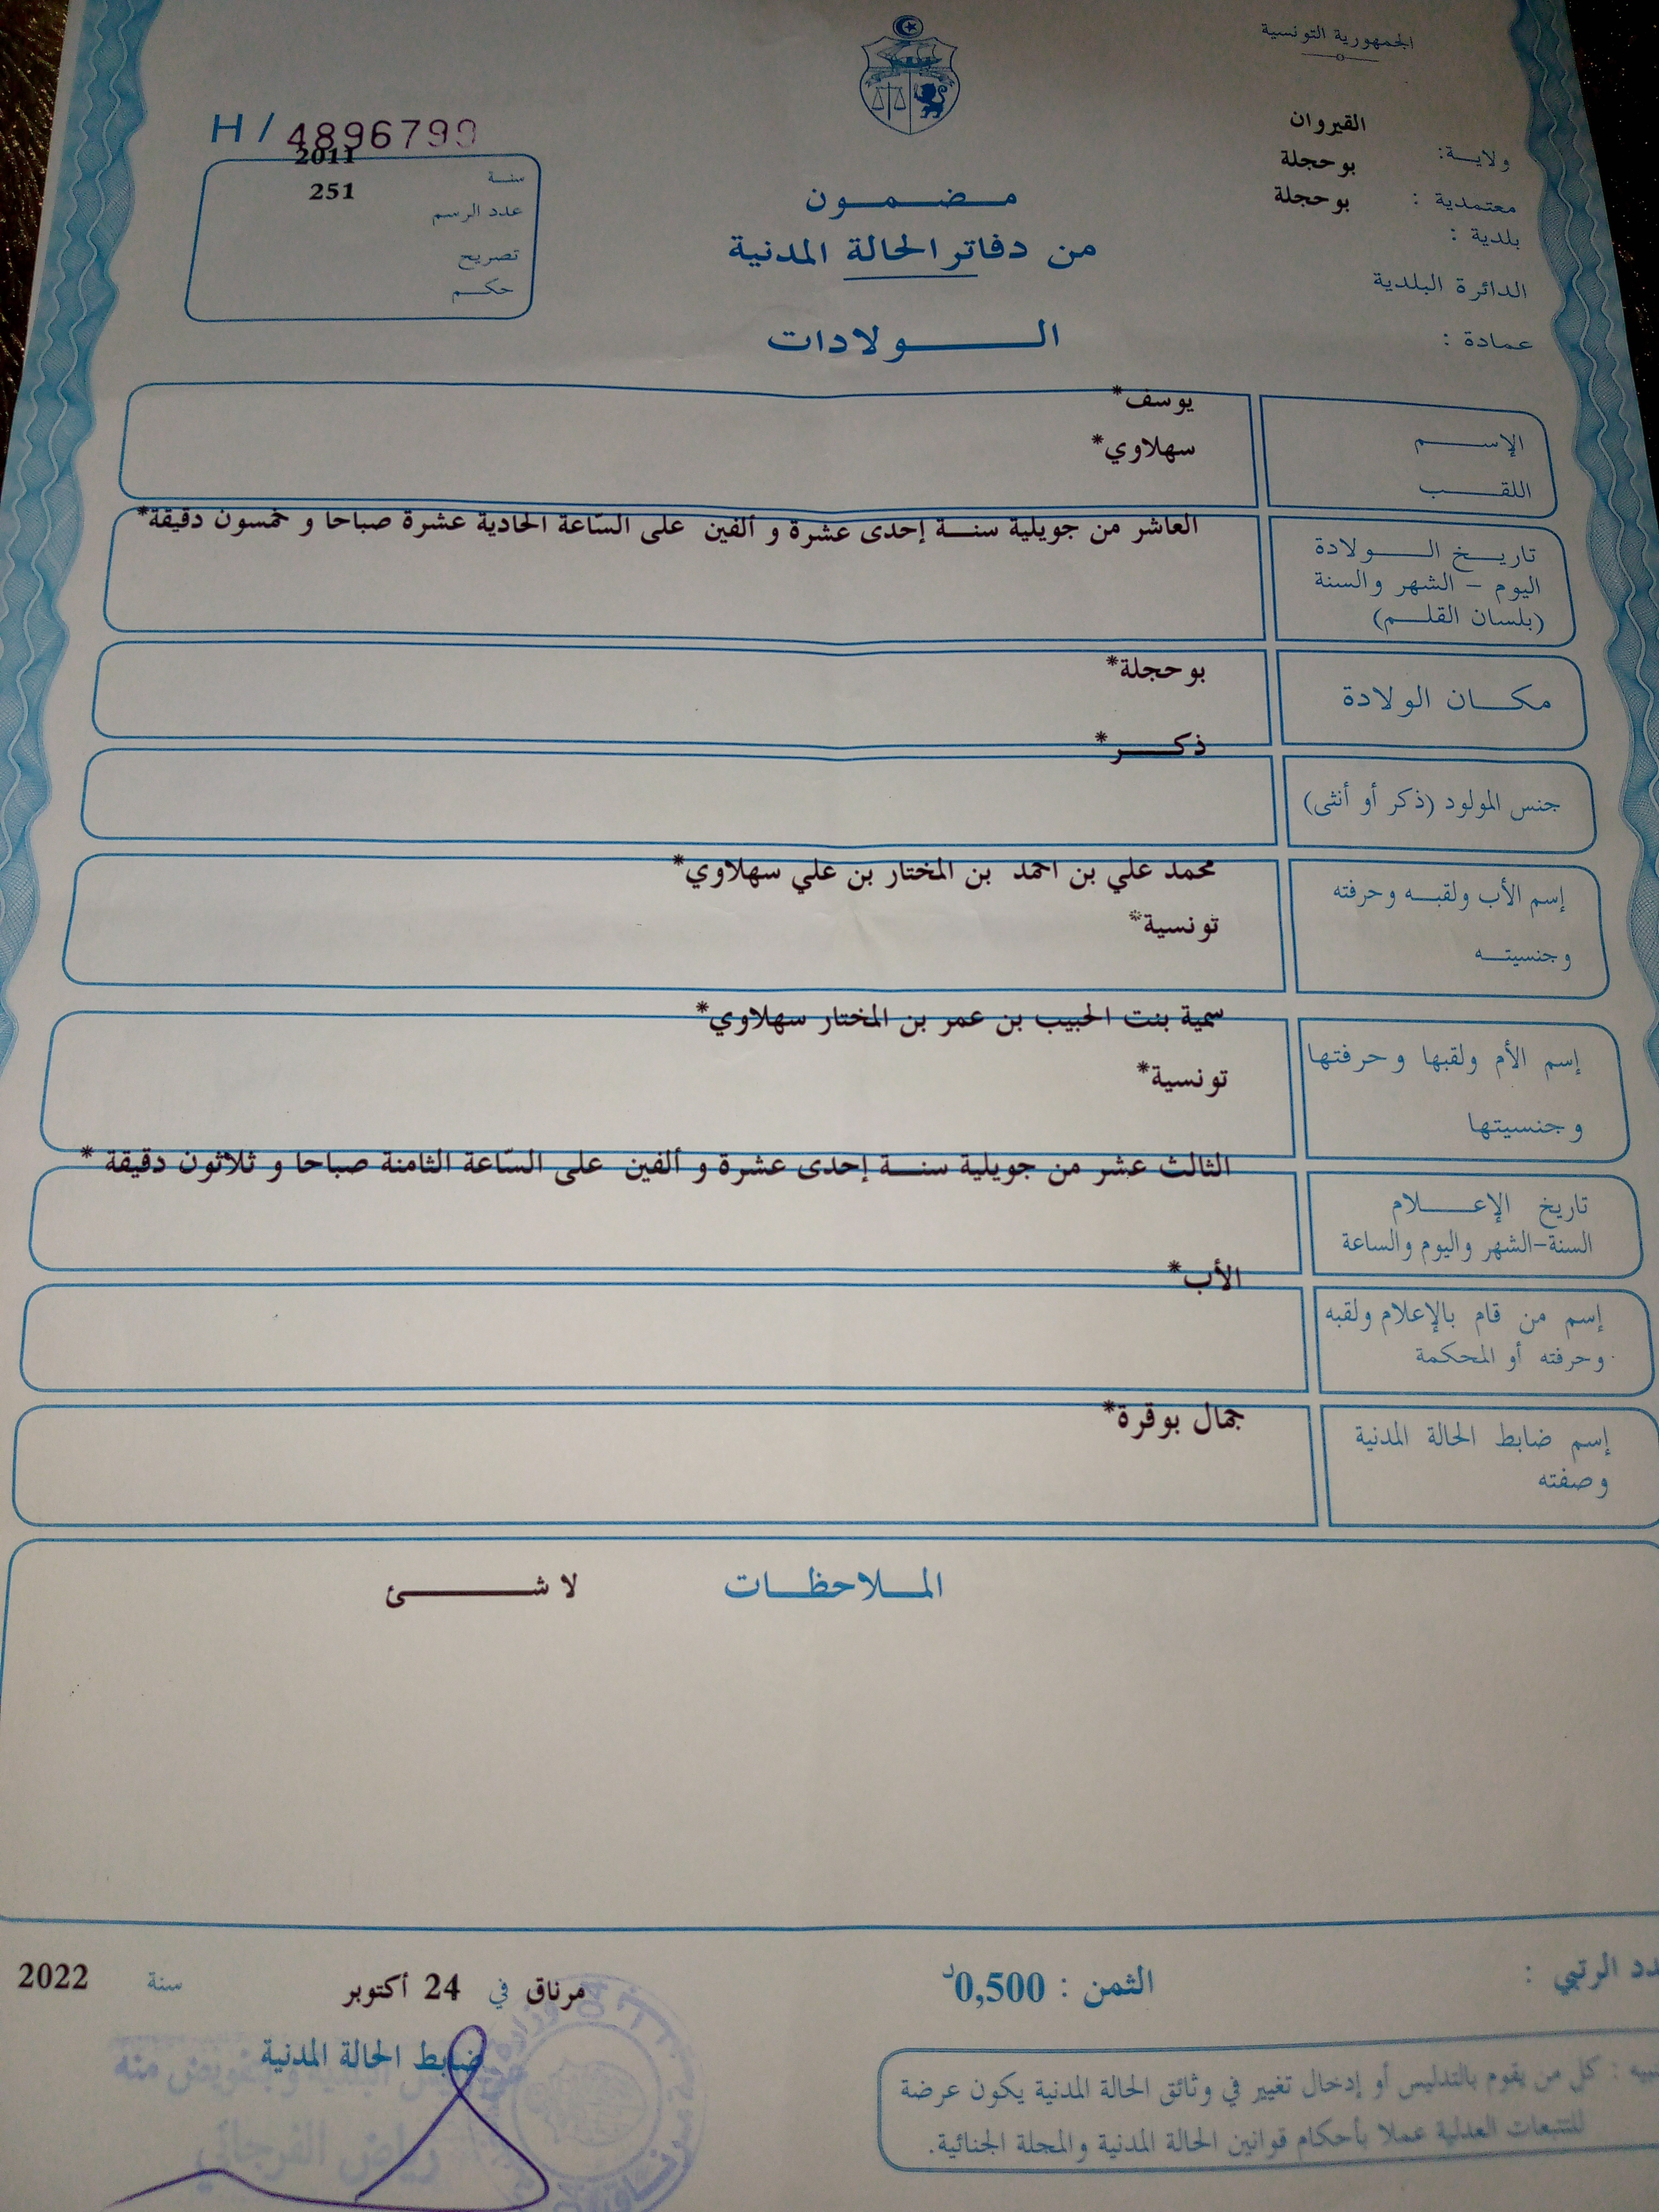 الجمهورية التونسية
القيروان
ولايـــة:
بوحجلة
معتمدية :
بوحجلة
بلدية :
الدائرة البلدية
عمادة :
H / 4896799
2011
سنـــة
251
عدد الرسم
تصريح
حكـــم
مـــضـــمـــون
من دفاتر الحالة المدنية
الـــولادات
يوسف*
الإســـم
سهلاوي*
اللقـــب
العاشر من جويلية سنـــة إحدى عشرة و ألفين على السّاعة الحادية عشرة صباحا و خمسون دقيقة*
تاريـــخ الـــولادة
اليوم - الشهر والسنة
(بلسان القلـــم)
بوحجلة*
مكـــان الولادة
ذكـــر*
جنس المولود (ذكر أو أنثى)
محمد علي بن احمد بن المختار بن علي سهلاوي*
إسم الأب ولقبـــه وحرفته
تونسية*
وجنسيتـــه
سمية بنت الحبيب بن عمر بن المختار سهلاوي*
إسم الأم ولقبها وحرفتها
تونسية*
وجنسيتها
الثالث عشر من جويلية سنـــة إحدى عشرة و ألفين على السّاعة الثامنة صباحا و ثلاثون دقيقة *
تاريخ الإعـــلام
السنة-الشهر واليوم والساعة
الأب*
إسم من قام بالإعلام ولقبه
وحرفته أو المحكمة
جمال بوقرة*
إسم ضابط الحالة المدنية
وصفته
المـــلاحظـــات
لا شـــئ
دد الرتبي :
الثمن : 0,500د
مرناق في 24 أكتوبر سنة 2022
ضابط الحالة المدنية
رياض الفرجاني
بيه : كل من يقوم بالتدليس أو إدخال تغيير في وثائق الحالة المدنية يكون عرضة
للتتبعات العدلية عملا بأحكام قوانين الحالة المدنية والمجلة الجنائية.